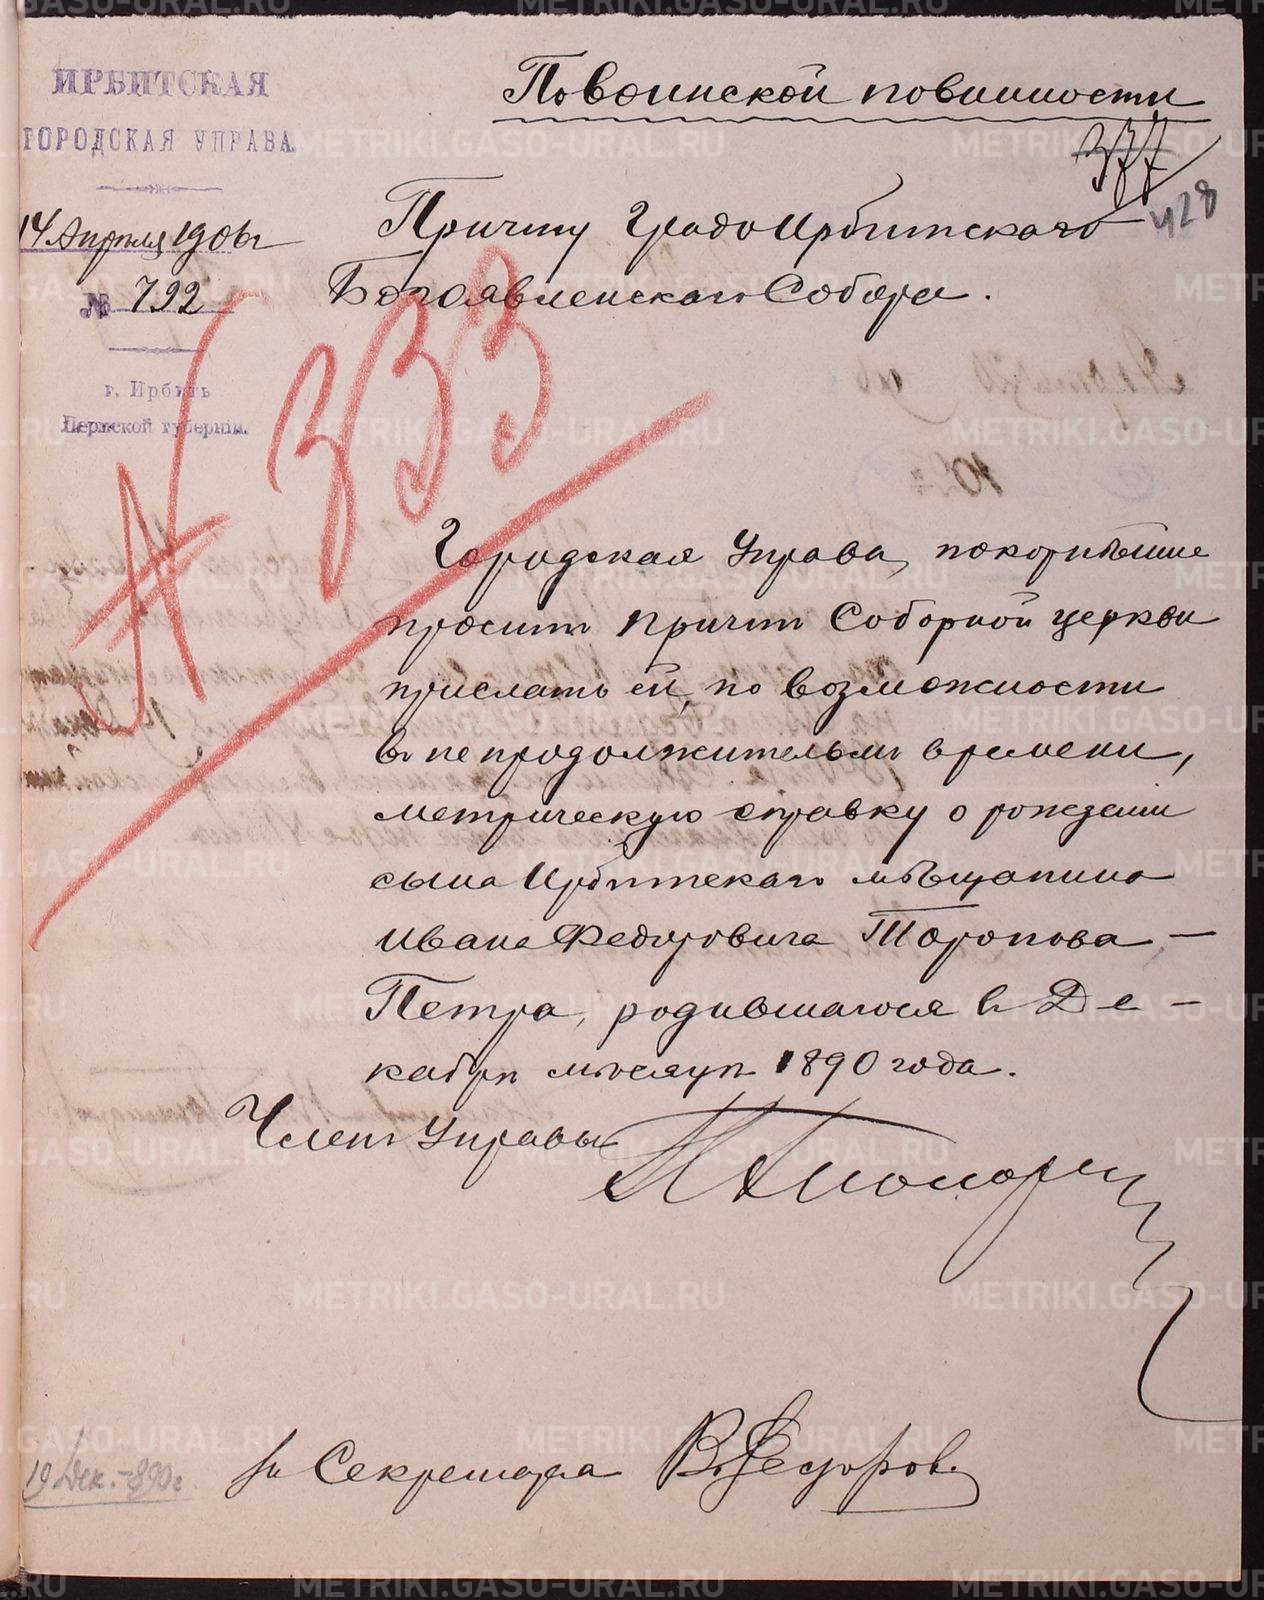 ИРБИТСКАЯ
ГОРОДСКАЯ УПРАВА.
14 Апреля 1906 г
№ 792
г. Ирбить
Пермской губерніи.
По воинской повинности
377
428
Причту Градо Ирбитскаго
Богоявленскаго Собора.
№ 333
Городская Управа, покорнѣйше
просит Причтъ Соборной церкви
прислать ей, по возможности
въ непродолжительом времени,
метрическую справку о рожденіи
сына Ирбитскаго мѣщанина
Ивана Федоровича Торопова -
Петра, родившагося въ Де-
кабрѣ мѣсяцѣ 1890 года.
Членъ Управы
За Секретаря В. Федоров.
19 Дек. - 890 г.
METRIKI.GASO-URAL.RU